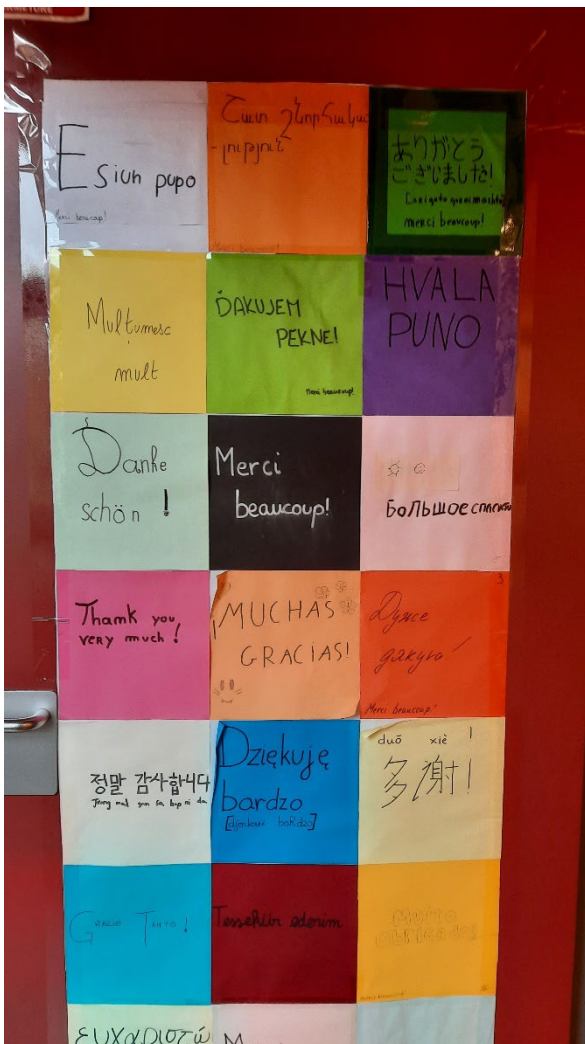 E siun pupo
Merci beaucoup!
Շատ շնորհակա
-լություն
Merci beaucoup!
ありがとう
ございました!
merci beaucoup!
Mulţumesc
mult
ĎAKUJEM
PEKNE!
Merci beaucoup!
HVALA
PUNO
Danke
schön !
Merci
beaucoup!
Большое спасибо
Thank you
very much!
¡MUCHAS
GRACIAS!
3
Дуже
дякую!
Merci beaucoup!
정말 감사합니다
Jeong mal gam sa hap ni da
Dziękuję
bardzo
[djenkouié bardzo]
duō xiè !
多谢!
GRAZIE TANTO !
Tessekür ederim
MUITO
OBRIGADO!
Merci beaucoup!
ευχαριστώ
M